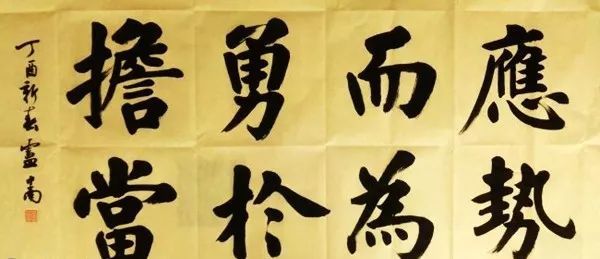 應勢
而為
勇於
擔當
丁酉新春